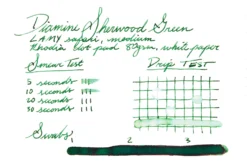 Diamine Sherwood Green
LAMY safari, medium
Rhodia dot pad 80gm, white paper
Smear Test
Drip TEST
5 seconds
10 seconds
20 seconds
30 seconds
Swabs
2
3